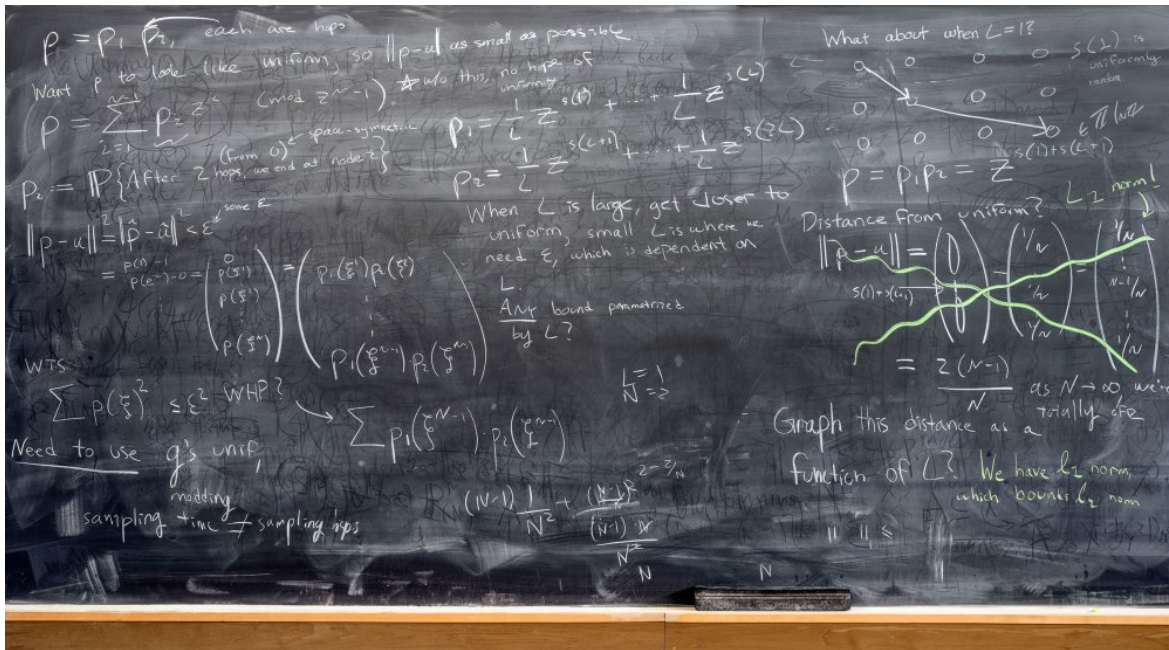 p = p₁ p₂, each are hops
Want p to look like uniform, so ||p-u|| as small as possible
(mod z^N - 1). ☆ w/o this, no hope of uniformity
p = ∑ p_z z^z
(from 0) space-symmetric
p_z := P{After 2 hops, we end at node z}
||p-u||² = |p̂-û|² < ε² some ε
p(1) - 1
WTS
∑ p(ξ)² ≤ ε² WHP?
∑ p₁(ξ^{N-1}) · p₂(ξ^{N-1})
Need to use g's unif,
modding
sampling time ≠ sampling hops
p₁ = 1/L z^{s(1)} + ... + 1/L z^{s(L)}
p₂ = 1/L z^{s(L+1)} + ... + 1/L z^{s(2L)}
When L is large, get closer to
uniform, small L is where we
need ε, which is dependent on
L.
Any bound parametrized
by L?
L = 1
N = 2
2 - 2/N
(N-1) 1/N² +
N
N
What about when L = 1?
s(1) is
uniformly
random
∈ Z/NZ
p = p₁p₂ = z^{s(1)+s(L+1)}
L₁ norm!
Distance from uniform?
||p-u|| =
s(1)+s(L+1)
= 2(N-1)/N as N→∞ we're
totally off
Graph this distance as a
function of L? We have l₁ norm,
which bounds l₂ norm
|| || ≤